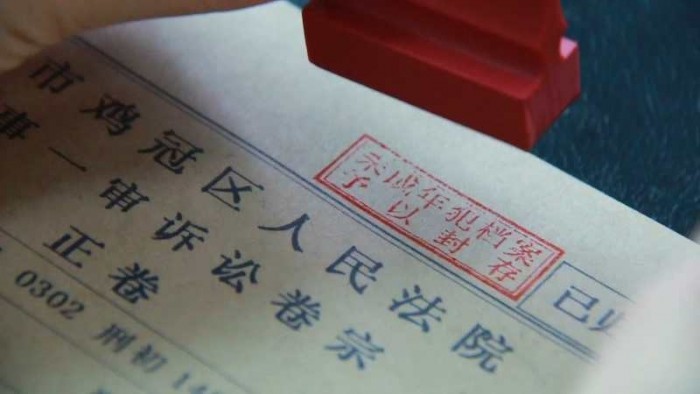 市鸡冠区人民法院
事一审诉讼卷宗
正卷
0302 刑初 14
未成年犯档案
予以封存
已归